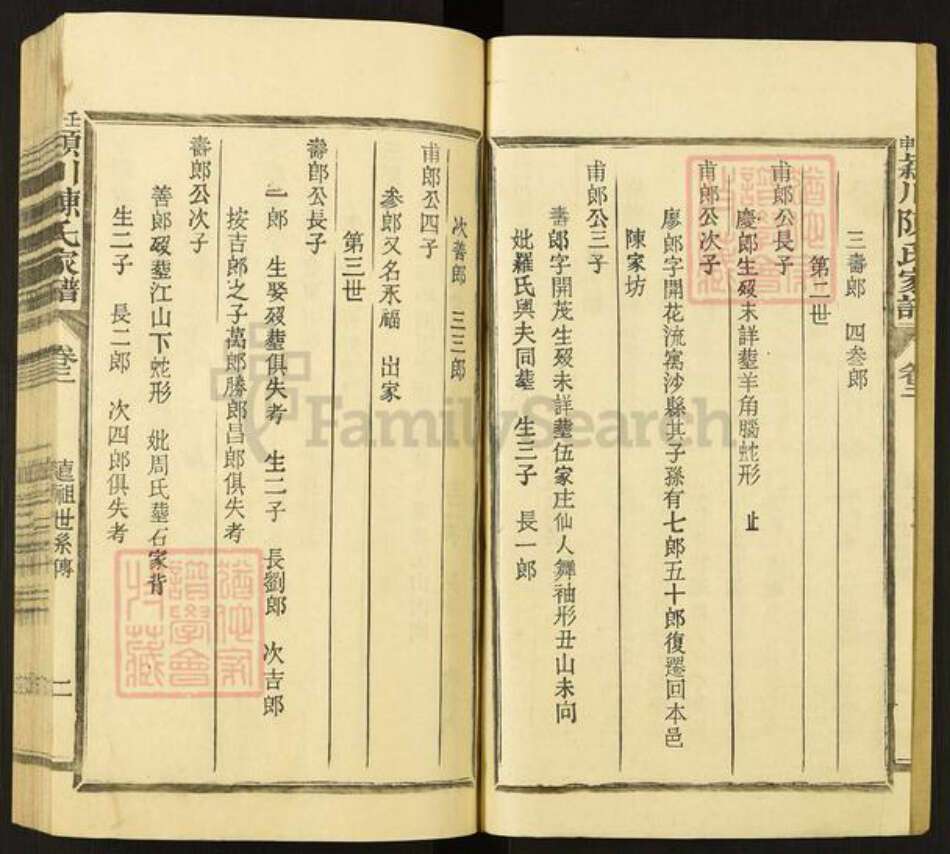 三壽郎　四叁郎
第二世
甫郎公長子
慶郎生歿未詳塟羊角腦蛇形　止
甫郎公次子
廖郎字開花流寓沙縣其子孫有七郎五十郎復遷回本邑
陳家坊
甫郎公三子
壽郎字開茂生歿未詳塟伍家庄仙人舞袖形丑山未向
妣羅氏與夫同塟　生三子　長一郎
次善郎　三三郎
甫郎公四子
叁郎又名永福　出家
第三世
壽郎公長子
一郎　生娶歿塟俱失考　生二子　長劉郎　次吉郎
按吉郎之子萬郎勝郎昌郎俱失考
壽郎公次子
善郎歿塟江山下蛇形　妣周氏塟石家背
生二子　長二郎　次四郎俱失考
潁川陳氏家譜　卷二　世系傳
FamilySearch